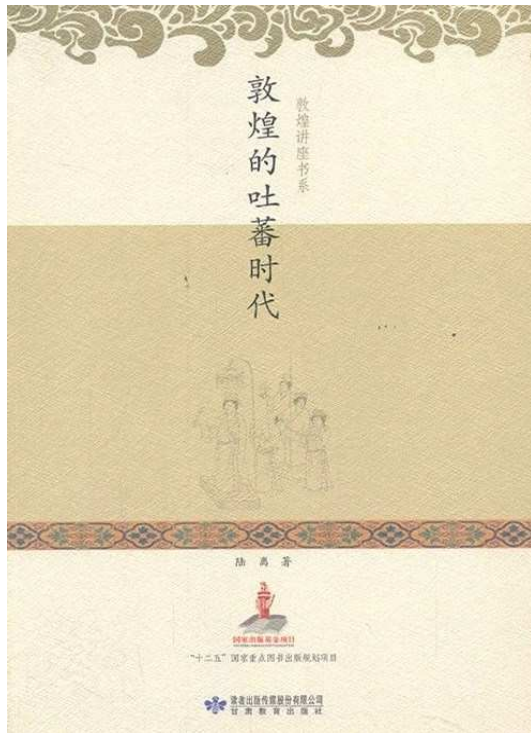 敦煌讲座书系
敦煌的吐蕃时代
陆离 著
国家出版基金项目
"十二五"国家重点图书出版规划项目
读者出版传媒股份有限公司
甘肃教育出版社